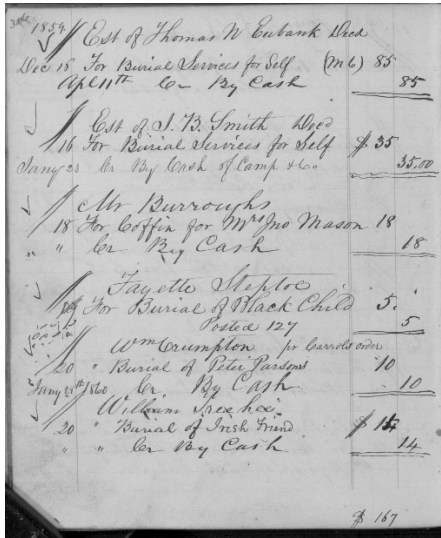 1859.
Est of Thomas W Eubank Decd
Dec 15 For Burial Services for Self (M C) 85
Apl 11th Cr By Cash 85
Est of S. B. Smith Decd
16 For Burial Services for Self $ 35
Jany 23 Cr By Cash of Camp & Co 35.00
Mr Burroughs
18 For Coffin for Mrs Jno Mason 18
" Cr By Cash 18
Fayette Steptoe
For Burial of Black Child 5.
Posted 127 5
Wm Crumpton pr Carrols order
20 " Burial of Peter Parsons 10
Jany 24th 1860 Cr By Cash 10
William
20 " Burial of Irish Friend $ 14
" " Cr By Cash 14
$ 167